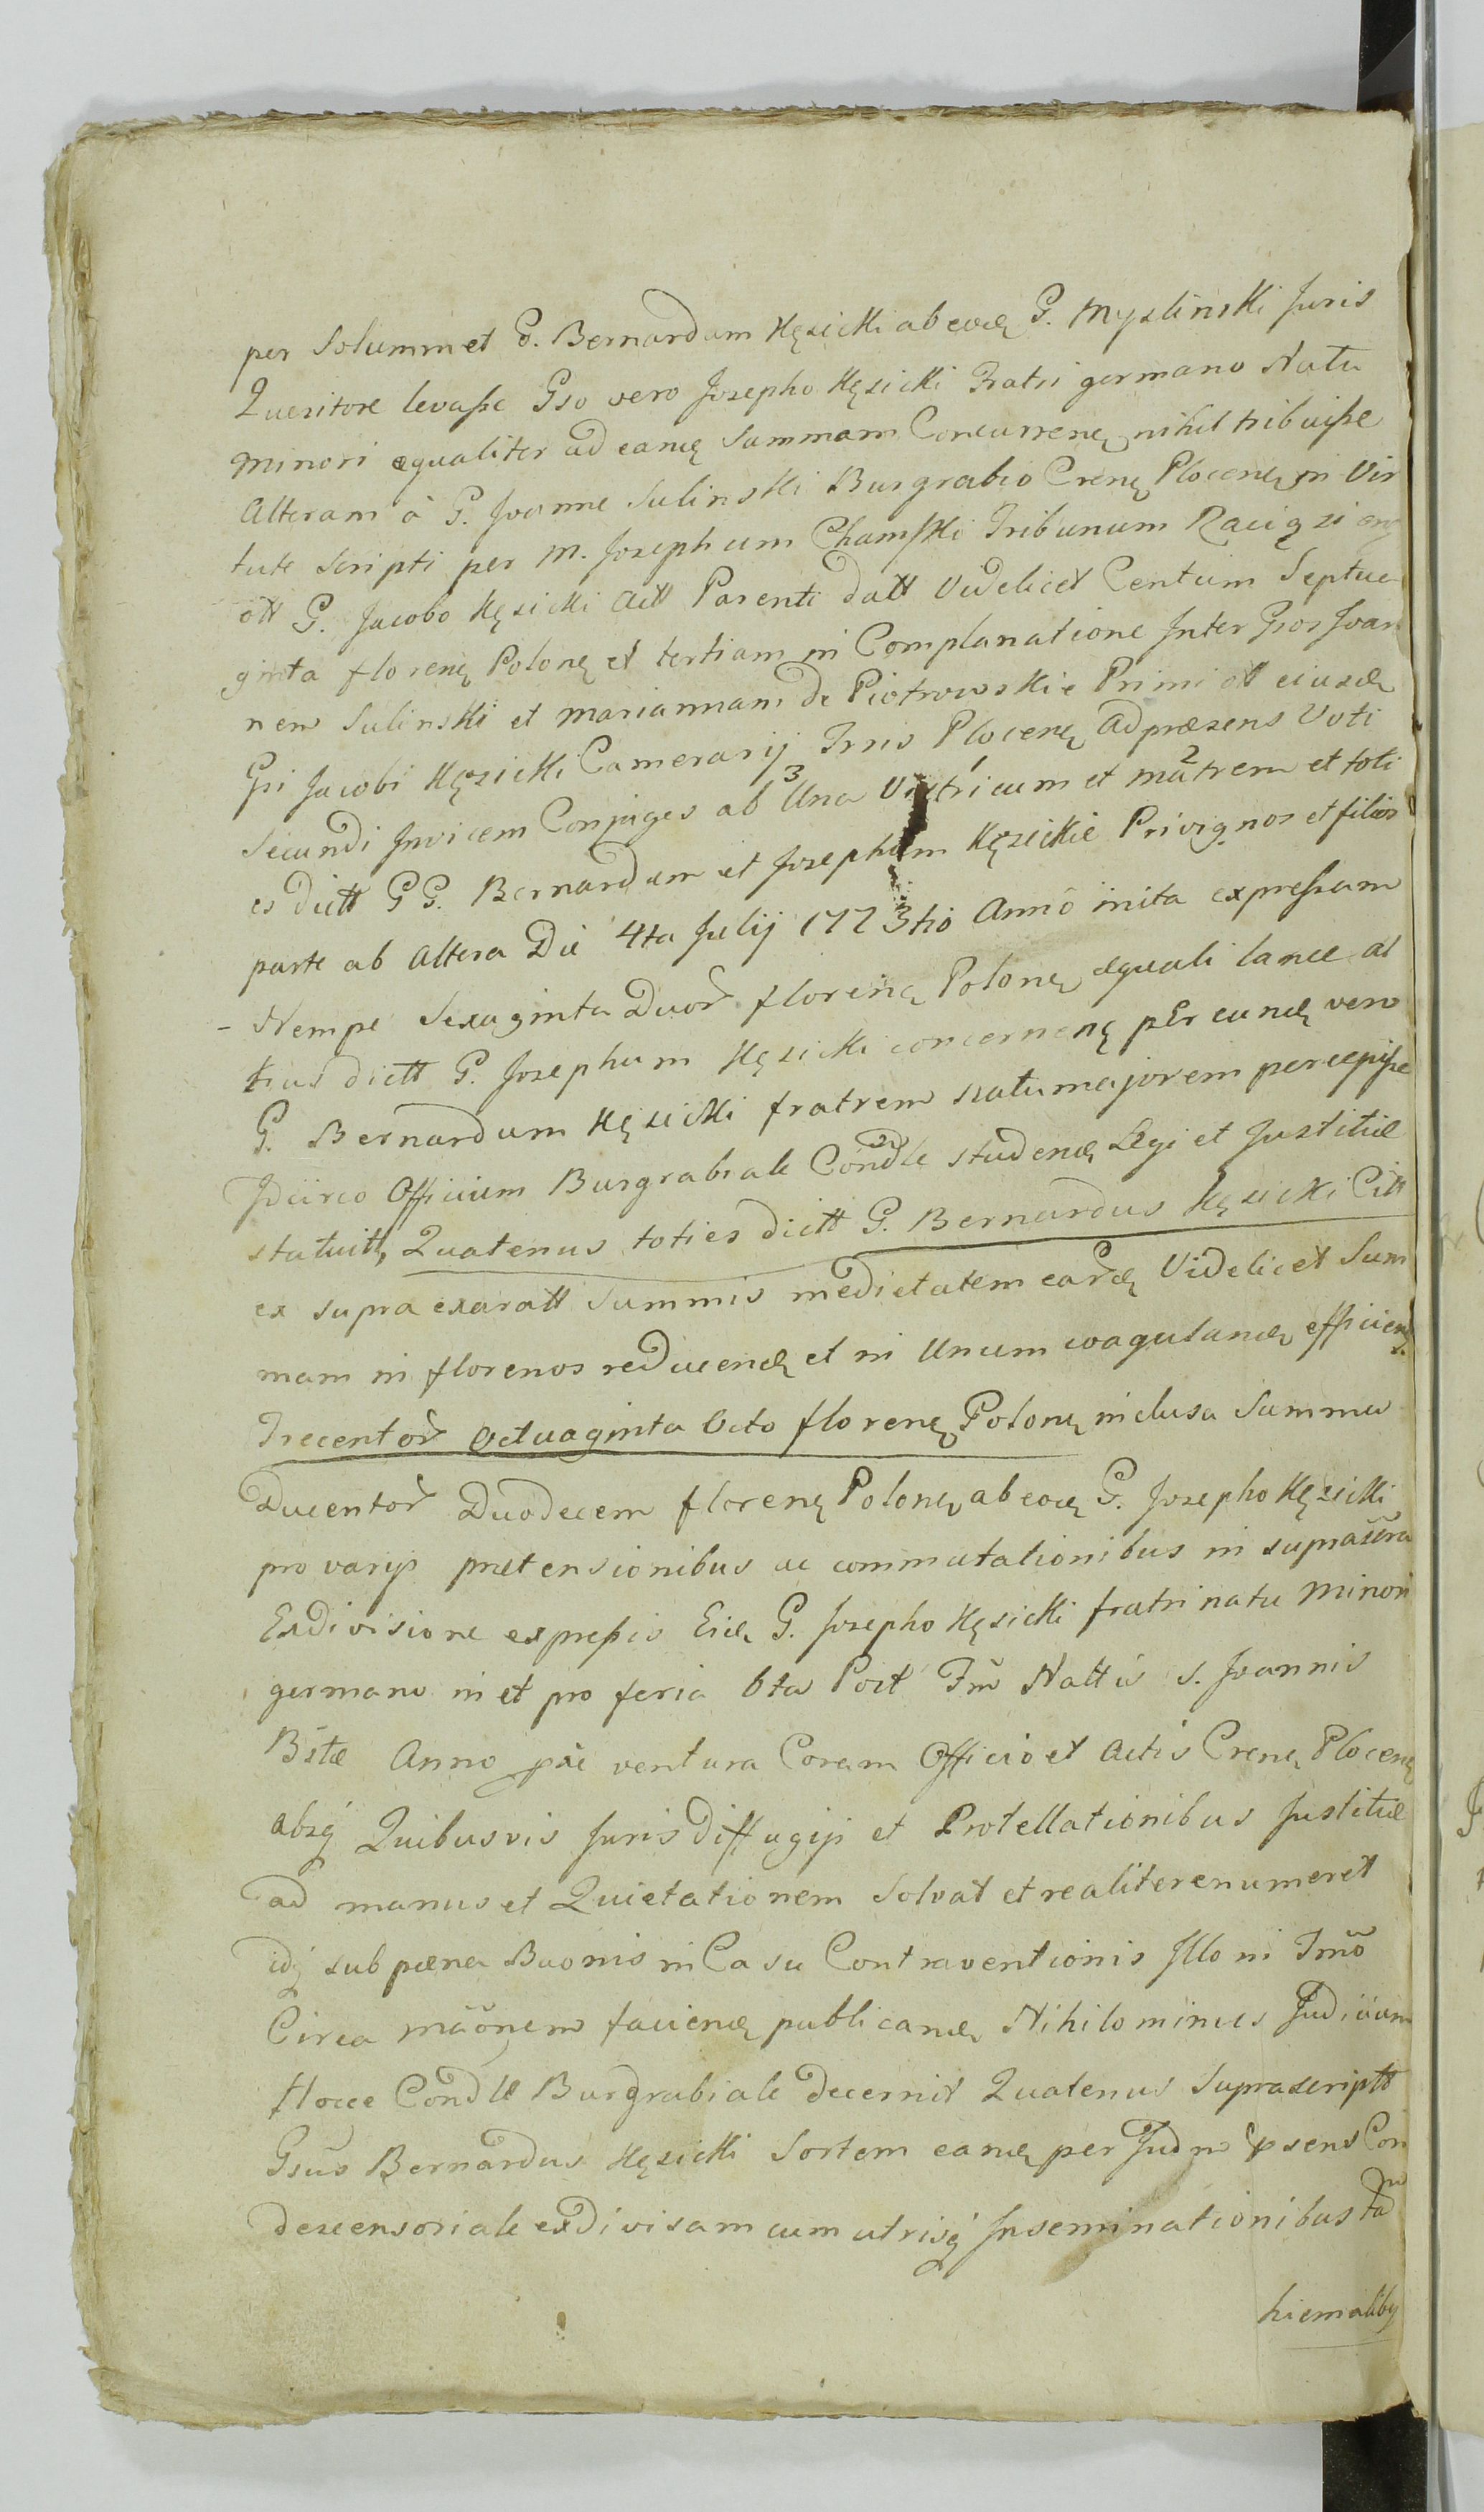 per Solummet G. Bernardum Kęsicki ab eodę G. Myslinski Juris
Quesitore levasse Gso vero Josepho Kęsicki Fratri germano Natu
minori æqualiter ad eandę Summam Concurrenę nihil tribuisse
Alteram à G. Joanne Sulinski Burgrabio Crenę Plocenę in Vir
tute Scripti per M. Josephum Chamski Tribunum Raciązien
ott G. Jacobo Kęsicki Actt Parenti datt Videlicet Centum Septua
ginta florenę Polonę et tertiam in Complanatione Inter Gsos Joan
nem Sulinski et Mariannam de Piotrowskie Primi ott eiusdę
Gsi Jacobi Kęsicki Camerarij Trris Plocenę ad præsens Voti
Secundi Invicem Conjuges ab 3 Una 1 Vitricum et 2 matrem et toti
es dictt GG. Bernardum et Josephum Kęsickie Privignos et filios
parte ab Altera Die 4ta Julij 1773tio Anno inita expressam
- Nempe Sexaginta Duor florenę Polonę æquali lance al
tius dictt G. Josephum Kęsicki concernenę per eundę vero
G. Bernardum Kęsicki fratrem natu majorem percepisse
Idcirco Officium Burgrabiale Condle studendę Legi et Justitiæ
statuitt, Quatenus toties dictt G. Bernardus Kęsicki Citt
ex supra exaratt Summis medietatem eardę Videlicet Sum
mam in florenos reducendę et in Unum coagulandę efficienę
Trecentor Octuaginta Octo florenę Polonę inclusa Summa
Ducentor Duodecem florenę Polonę ab eodę G. Josepho Kęsicki
pro varijs prætensionibus ac commutationibus in supra
Exdivisione expressis Eidę G. Josepho Kęsicki fratri natu Minori
germano in et pro feria 6ta Post Fm Nattis S. Joannis
Bstæ Anno pñi ventura Coram Officio et Actis Crenę Plocenę
absq Quibusvis Juris diffugijs et Protellationibus Justitiæ
ad manus et Quietationem Solvat et realiter enumeret
idq sub pæna Baonis in Casu Contraventionis Illo in Tmõ
Circa mãonem faciendę publicandę Nihilominus Judicium
Hocce Condle Burgrabiale decernit Quatenus Suprascriptt
Gsus Bernardus Kęsicki Sortem eandę per Judm præsens Con
descensoriale exdivisam cum utrisq Inseminationibus
hiemalibq